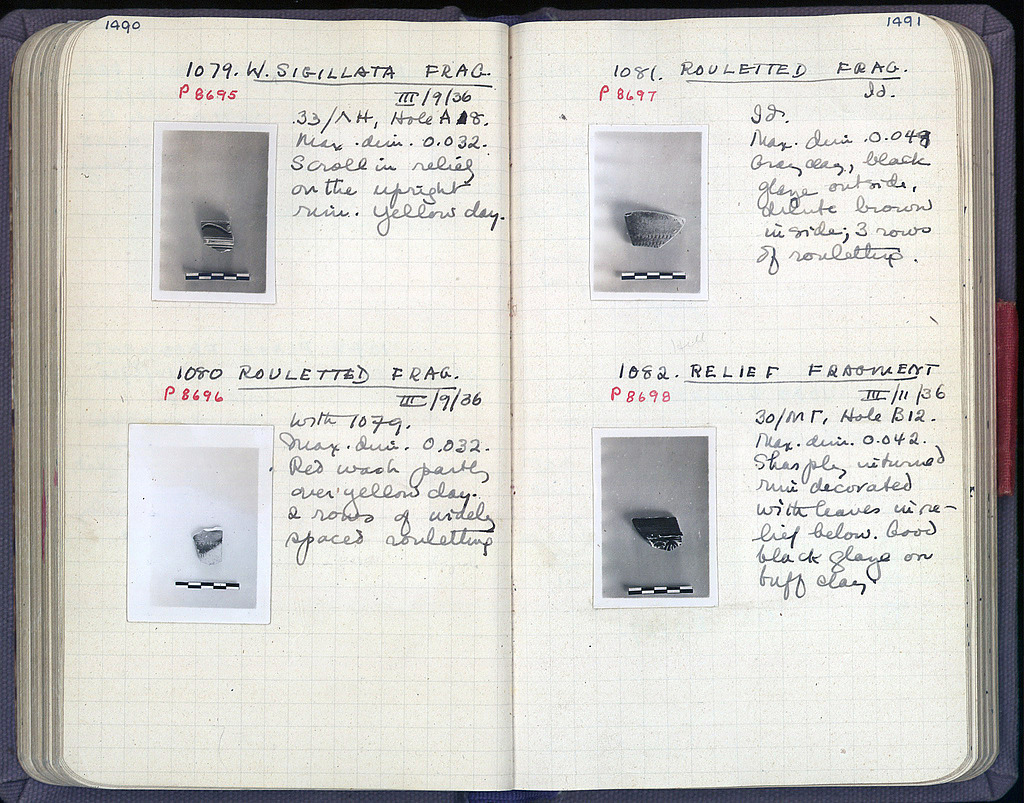 1490
1079. W. SIGILLATA FRAG.
P 8695
III/9/36
33/ΛH, Hole A 18.
Max. dim. 0.032.
Scroll in relief
on the upright
rim. Yellow clay.
1080 ROULETTED FRAG.
P 8696
III/9/36
With 1079.
Max. dim. 0.032.
Red wash partly
over yellow clay.
2 rows of widely
spaced rouletting
1491
1081. ROULETTED FRAG.
P 8697
Id.
Id.
Max. dim. 0.049
Gray clay, black
glaze outside,
dilute brown
inside; 3 rows
of rouletting.
1082. RELIEF FRAGMENT
P 8698
III/11/36
30/ΜΓ, Hole B12.
Max. dim. 0.042.
Sharply inturned
rim decorated
with leaves in re-
lief below. Good
black glaze on
buff clay.